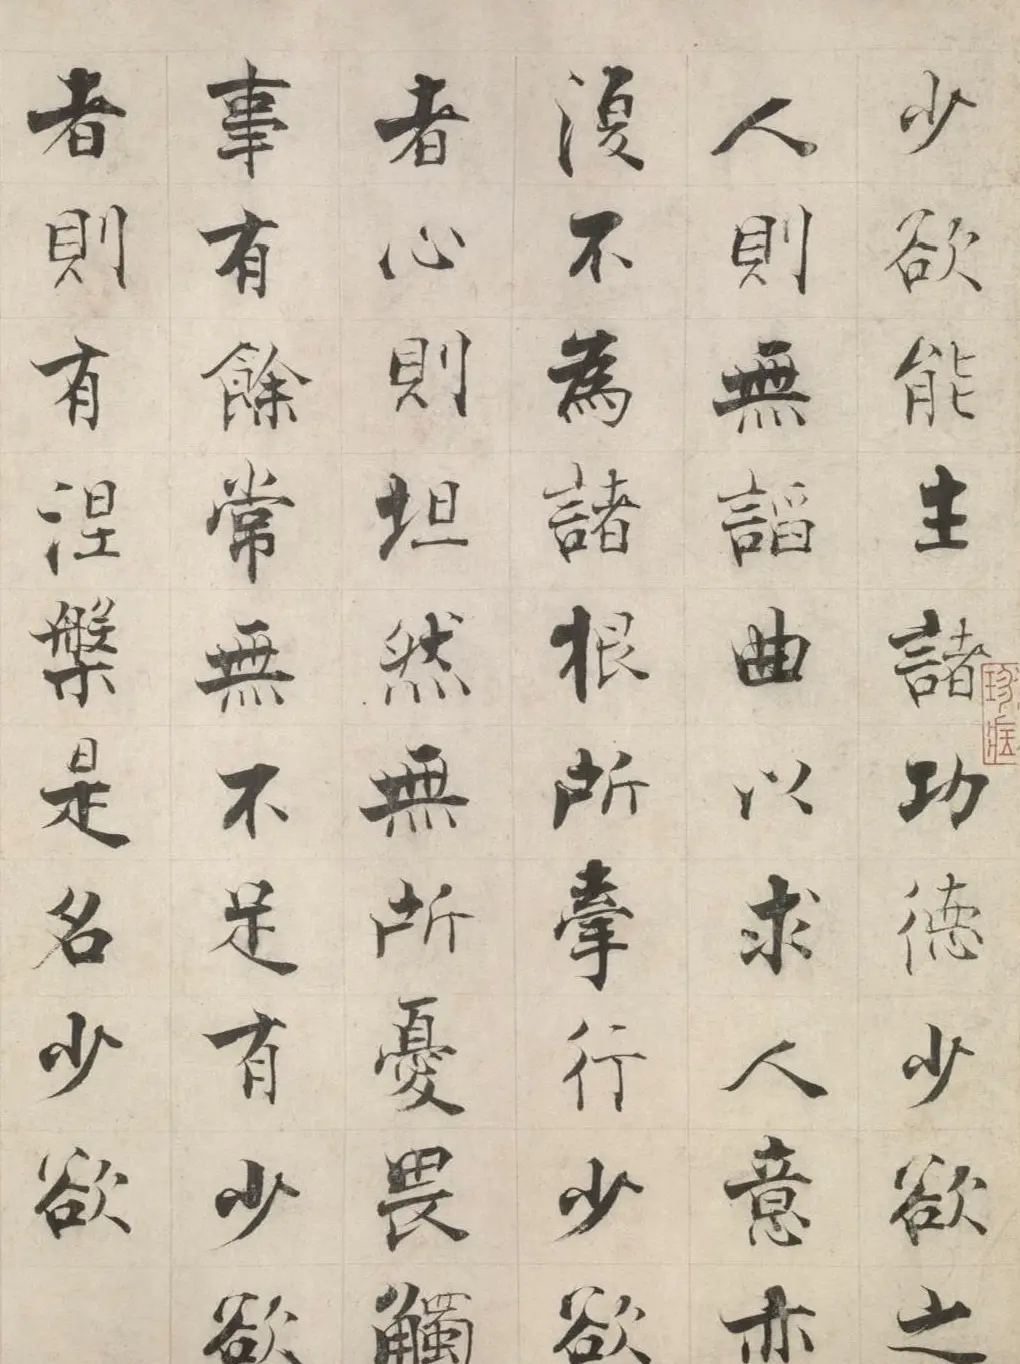 少欲能生諸功德少欲之
人則無謟曲以求人意亦
復不為諸根所牽行少欲
者心則坦然無所憂畏觸
事有餘常無不足有少欲
者則有涅槃是名少欲